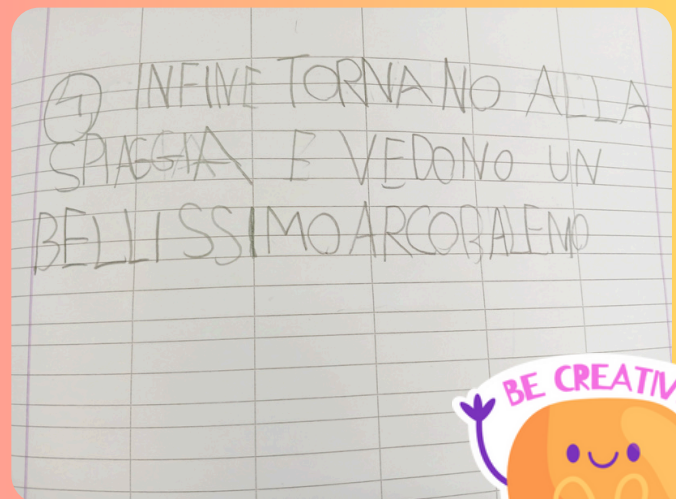 INFINE TORNANO ALLA
SPIAGGIA E VEDONO UN
BELLISSIMO ARCOBALENO
BE CREATIV